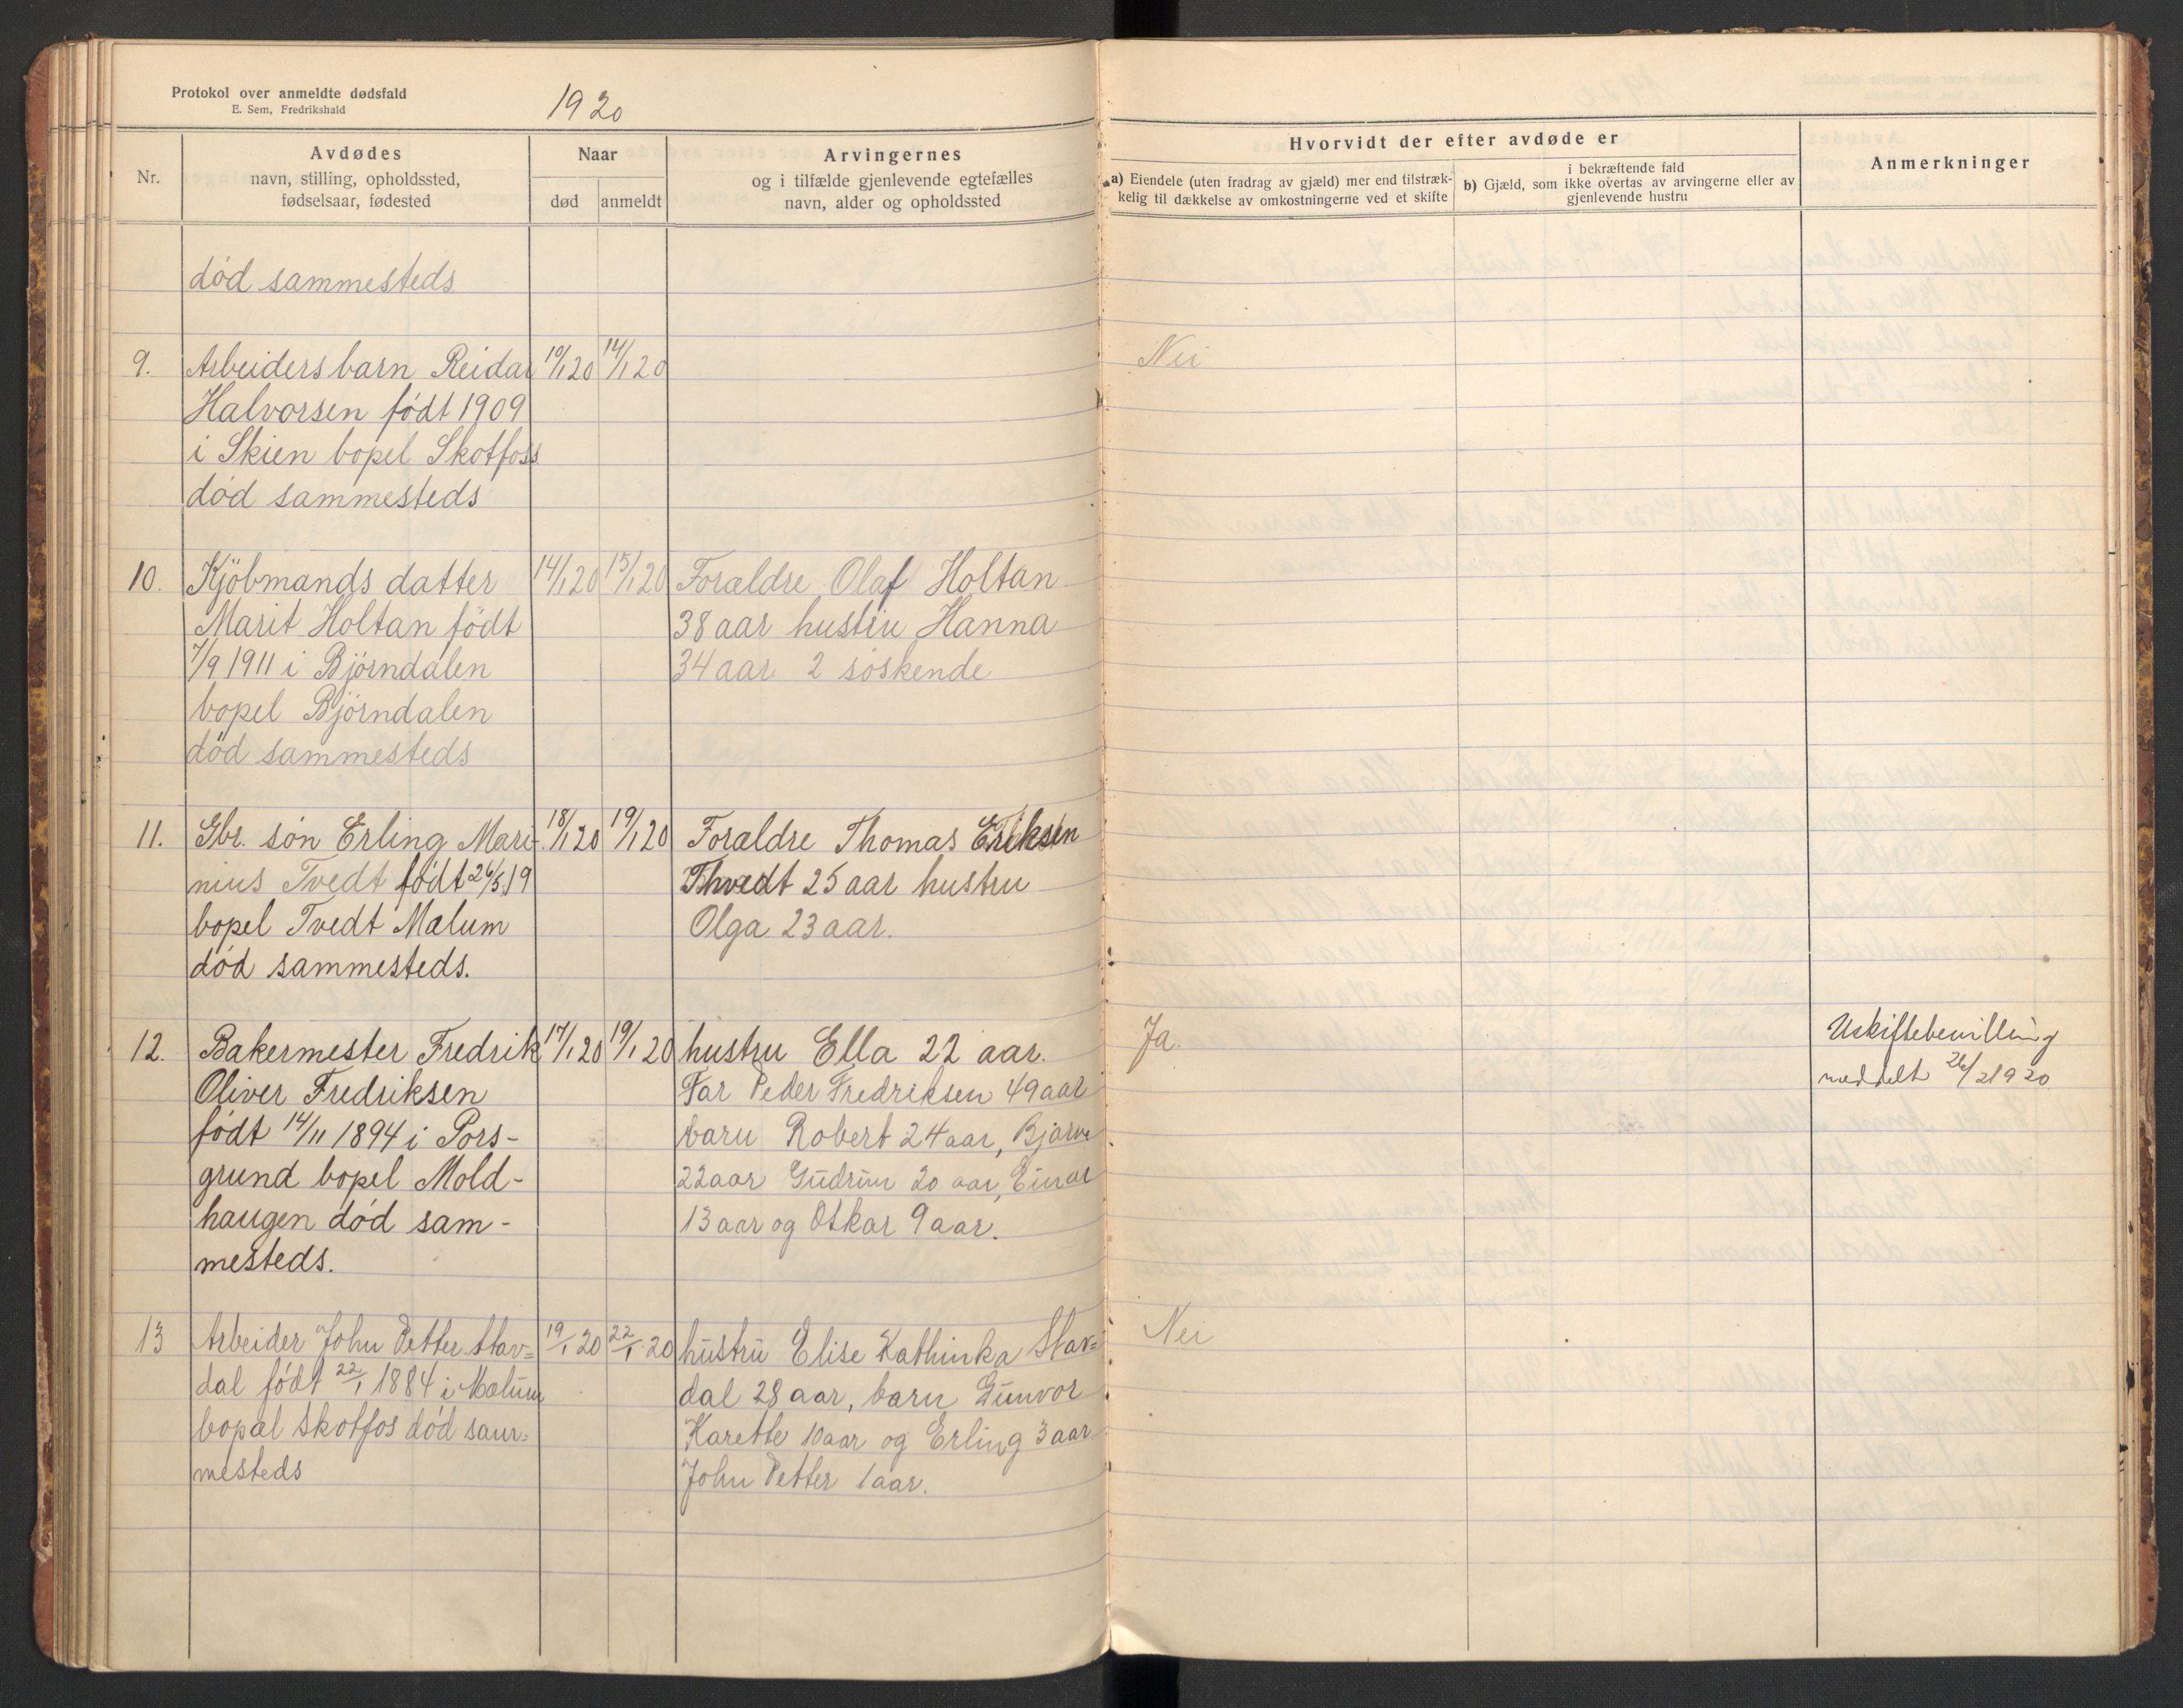 Protokol over anmeldte dødsfald
E. Sem, Fredrikshald
1920
Nr.
Avdødes
navn, stilling, opholdssted,
fødselsaar, fødested
Naar
død
anmeldt
Arvingernes
og i tilfælde gjenlevende egtefælles
navn, alder og opholdssted
Hvorvidt der efter avdøde er
a) Eiendele (uten fradrag av gjæld) mer end tilstræk-
kelig til dækkelse av omkostningerne ved et skifte
i bekræftende fald
b) Gjæld, som ikke overtas av arvingerne eller av
gjenlevende hustru
Anmerkninger
død sammesteds
9. Arbeidersbarn Reidar 10/1 20 14/1 20 Nei
Halvorsen født 1909
i Skien bopel Skotfoss
død sammesteds
10. Kjöbmands datter 14/1 20 15/1 20 Forældre Olaf Holtan
Marit Holtan födt 38 aar hustru Hanna
7/9 1911 i Björndalen 34 aar 2 söskende
bopel Björndalen
död sammesteds
11. Gbr. sön Erling Mari- 18/1 20 19/1 20 Forældre Thomas Eriksen
nius Tvedt født 26/5 19 Thvedt 25 aar hustru
bopel Tvedt Mælum Olga 23 aar.
død sammesteds.
12. Bakermester Fredrik 17/1 20 19/1 20 hustru Ella 22 aar. Ja. Uskiftebevilling
Oliver Fredriksen Far Peder Fredriksen 49 aar meddelt 26/2 1920
født 14/11 1894 i Pors- barn Robert 24 aar, Bjarne
grund bopel Mold- 22 aar Gudrun 20 aar, Einar
haugen død sam- 13 aar og Oskar 9 aar.
mesteds.
13 Arbeider John Petter Stav= 19/1 20 22/1 20 hustru Elise Kathinka Stav= Nei
dal født 22/1 1884 i Mælum dal 28 aar, barn Gunvor
bopæl Skotfos død sam= Karette 10 aar og Erling 3 aar
mesteds John Petter 1 aar.